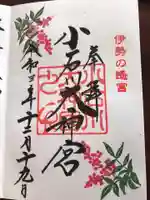 伊勢の遙宮
奉拝
小石川大神宮
令和三年十二月十九日